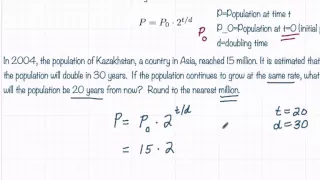 P=Population at time t
P = P₀ · 2^{t/d}
P_0=Population at t=0 (initial p
P₀
d=doubling time
In 2004, the population of Kazakhstan, a country in Asia, reached 15 million. It is estimated that
the population will double in 30 years. If the population continues to grow at the same rate, what
will the population be 20 years from now? Round to the nearest million.
P = P₀ · 2^{t/d}
t=20
d=30
= 15 · 2